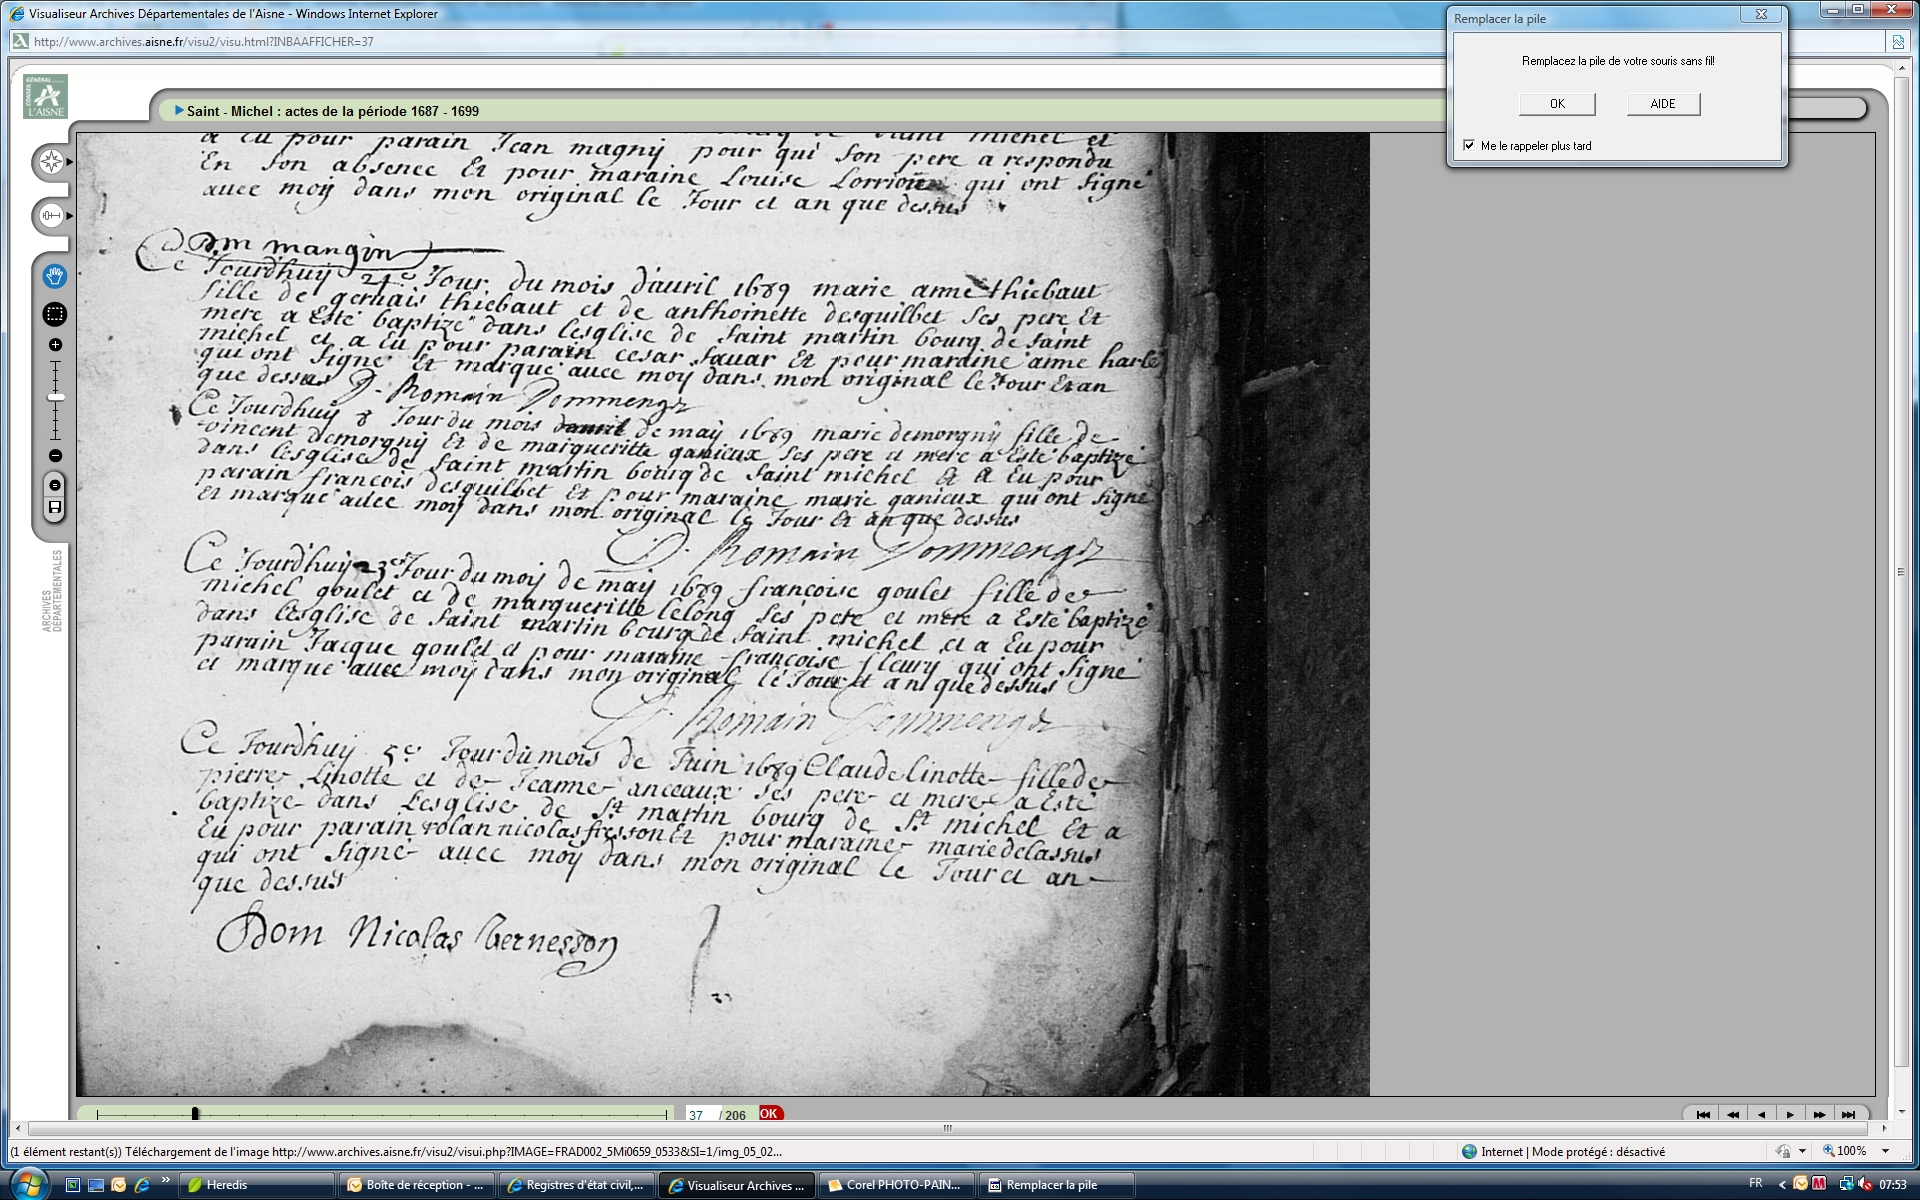 Visualiseur Archives Départementales de l'Aisne - Windows Internet Explorer
http://www.archives.aisne.fr/visu2/visu.html?INBAAFFICHER=37
Remplacer la pile
Remplacez la pile de votre souris sans fil!
OK
AIDE
Me le rappeler plus tard
CONSEIL
GÉNÉRAL
L'AISNE
Saint - Michel : actes de la période 1687 - 1699
a Eu pour parain Jean magny pour qui son pere a respondu
En son absence Et pour maraine Louise Lorrio qui ont signé
auec moy dans mon original le Jour et an que dessus
D. mangin
Ce Jourdhuy 24e Jour du mois dauril 1689 marie anne thiebaut
fille de geruais thiebaut et de anthoinette desquilbet ses pere Et
mere a Esté baptizé dans lesglise de saint martin bourg de saint
michel et a Eu pour parain cesar sauar Et pour maraine anne harlé
qui ont signé Et marqué auec moy dans mon original le Jour Et an
que dessus D. Romain Dommengé
Ce Jourdhuy 8 Jour du mois de may 1689 marie demorgny fille de
vincent demorgny Et de margueritte ganieux ses pere et mere a Esté baptizé
dans lesglise de saint martin bourg de saint michel Et A Eu pour
parain francois desquilbet Et pour maraine marie ganieux qui ont signé
Et marqué auec moy dans mon original le Jour Et an que dessus
D. Romain Dommengé
Ce Jourdhuy 23e Jour du moy de may 1689 francoise goulet fille de
michel goulet et de margueritte lelong ses pere et mere a Esté baptizé
dans lesglise de saint martin bourg de saint michel et a Eu pour
parain Jacque goulet et pour maraine francoise fleury qui ont signé
et marqué auec moy dans mon original le Jour et an que dessus
D. Romain Dommengé
Ce Jourdhuy 5e Jour du mois de Juin 1689 Claude linotte fille de
pierre linotte et de Jeanne anceaux ses pere et mere a Esté
baptizé dans Lesglise de St martin bourg de St michel Et a
Eu pour parain rolan nicolas fresson Et pour maraine marie delassus
qui ont signé auec moy dans mon original le Jour et an
que dessus
Dom Nicolas Bernesson
ARCHIVES
DEPARTEMENTALES
37 / 206 OK
(1 élément restant(s)) Téléchargement de l'image http://www.archives.aisne.fr/visu2/visui.php?IMAGE=FRAD002_5Mi0659_0533&SI=1/img_05_02...
Internet | Mode protégé : désactivé
100%
Heredis
Boîte de réception - ...
Registres d'état civil,...
Visualiseur Archives ...
Corel PHOTO-PAIN...
Remplacer la pile
FR
07:53